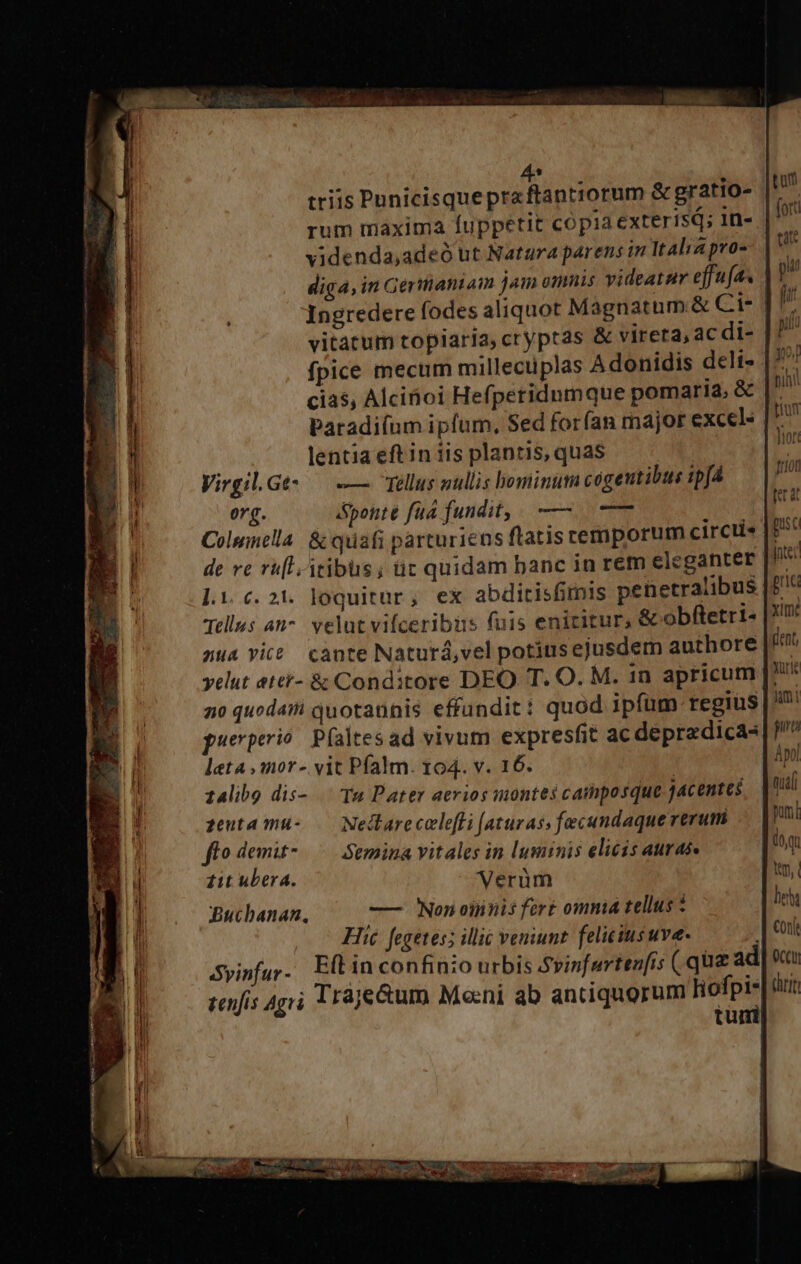 4.
triis Punicisque præſtantiorum & gratio-
rum maxima ſuppetit copia exterisq́; in-
videnda, adeò ut Natura parens in Italia pro-
diga, in Germaniam jam omnis videatur effuſa.
Ingredere ſodes aliquot Magnatum & Ci-
vitatum topiaria, cryptas & vireta, ac di-
ſpice mecum millecuplas Adonidis deli-
cias, Alcinoi Heſperidumque pomaria, &
Paradiſum ipſum. Sed forſan major excel-
lentia eſt in iis plantis, quas
Virgil. Ge- —— Tellus nullis hominum cogentibus ipſâ
org. Sponte ſuâ fundit, —— ——
Columella & quaſi parturiens ſtatis temporum circui-
de re ruſt. itibus; ut quidam hanc in rem eleganter
l. 1. c. 21. loquitur, ex abditisſimis penetralibus
Tellus an- velut viſceribus ſuis enititur, & obſtetri-
nua vice cante Naturâ, vel potius ejusdem authore
velut æter- & Conditore DEO T. O. M. in apricum
no quodam quotannis effundit: quod ipſum regius
puerperio Pſaltes ad vivum expresſit ac deprædica-
læta, mor- vit Pſalm. 104. v. 16.
talibꝰ dis- Tu Pater aerios montes camposque jacentes
tenta mu- Nectare cœleſti ſaturas, fœcundaque rerum
ſto demit- Semina vitales in luminis elicis auras.
tit ubera. Verùm
Buchanan. —— Non omnis fert omnia tellus:
Hic ſegetes; illic veniunt felicius uvæ.
Svinfur- Eſt in confinio urbis Svinfurtenſis (quæ ad
tenſis Agri Trajectum Mœni ab antiquorum hoſpi-
tum